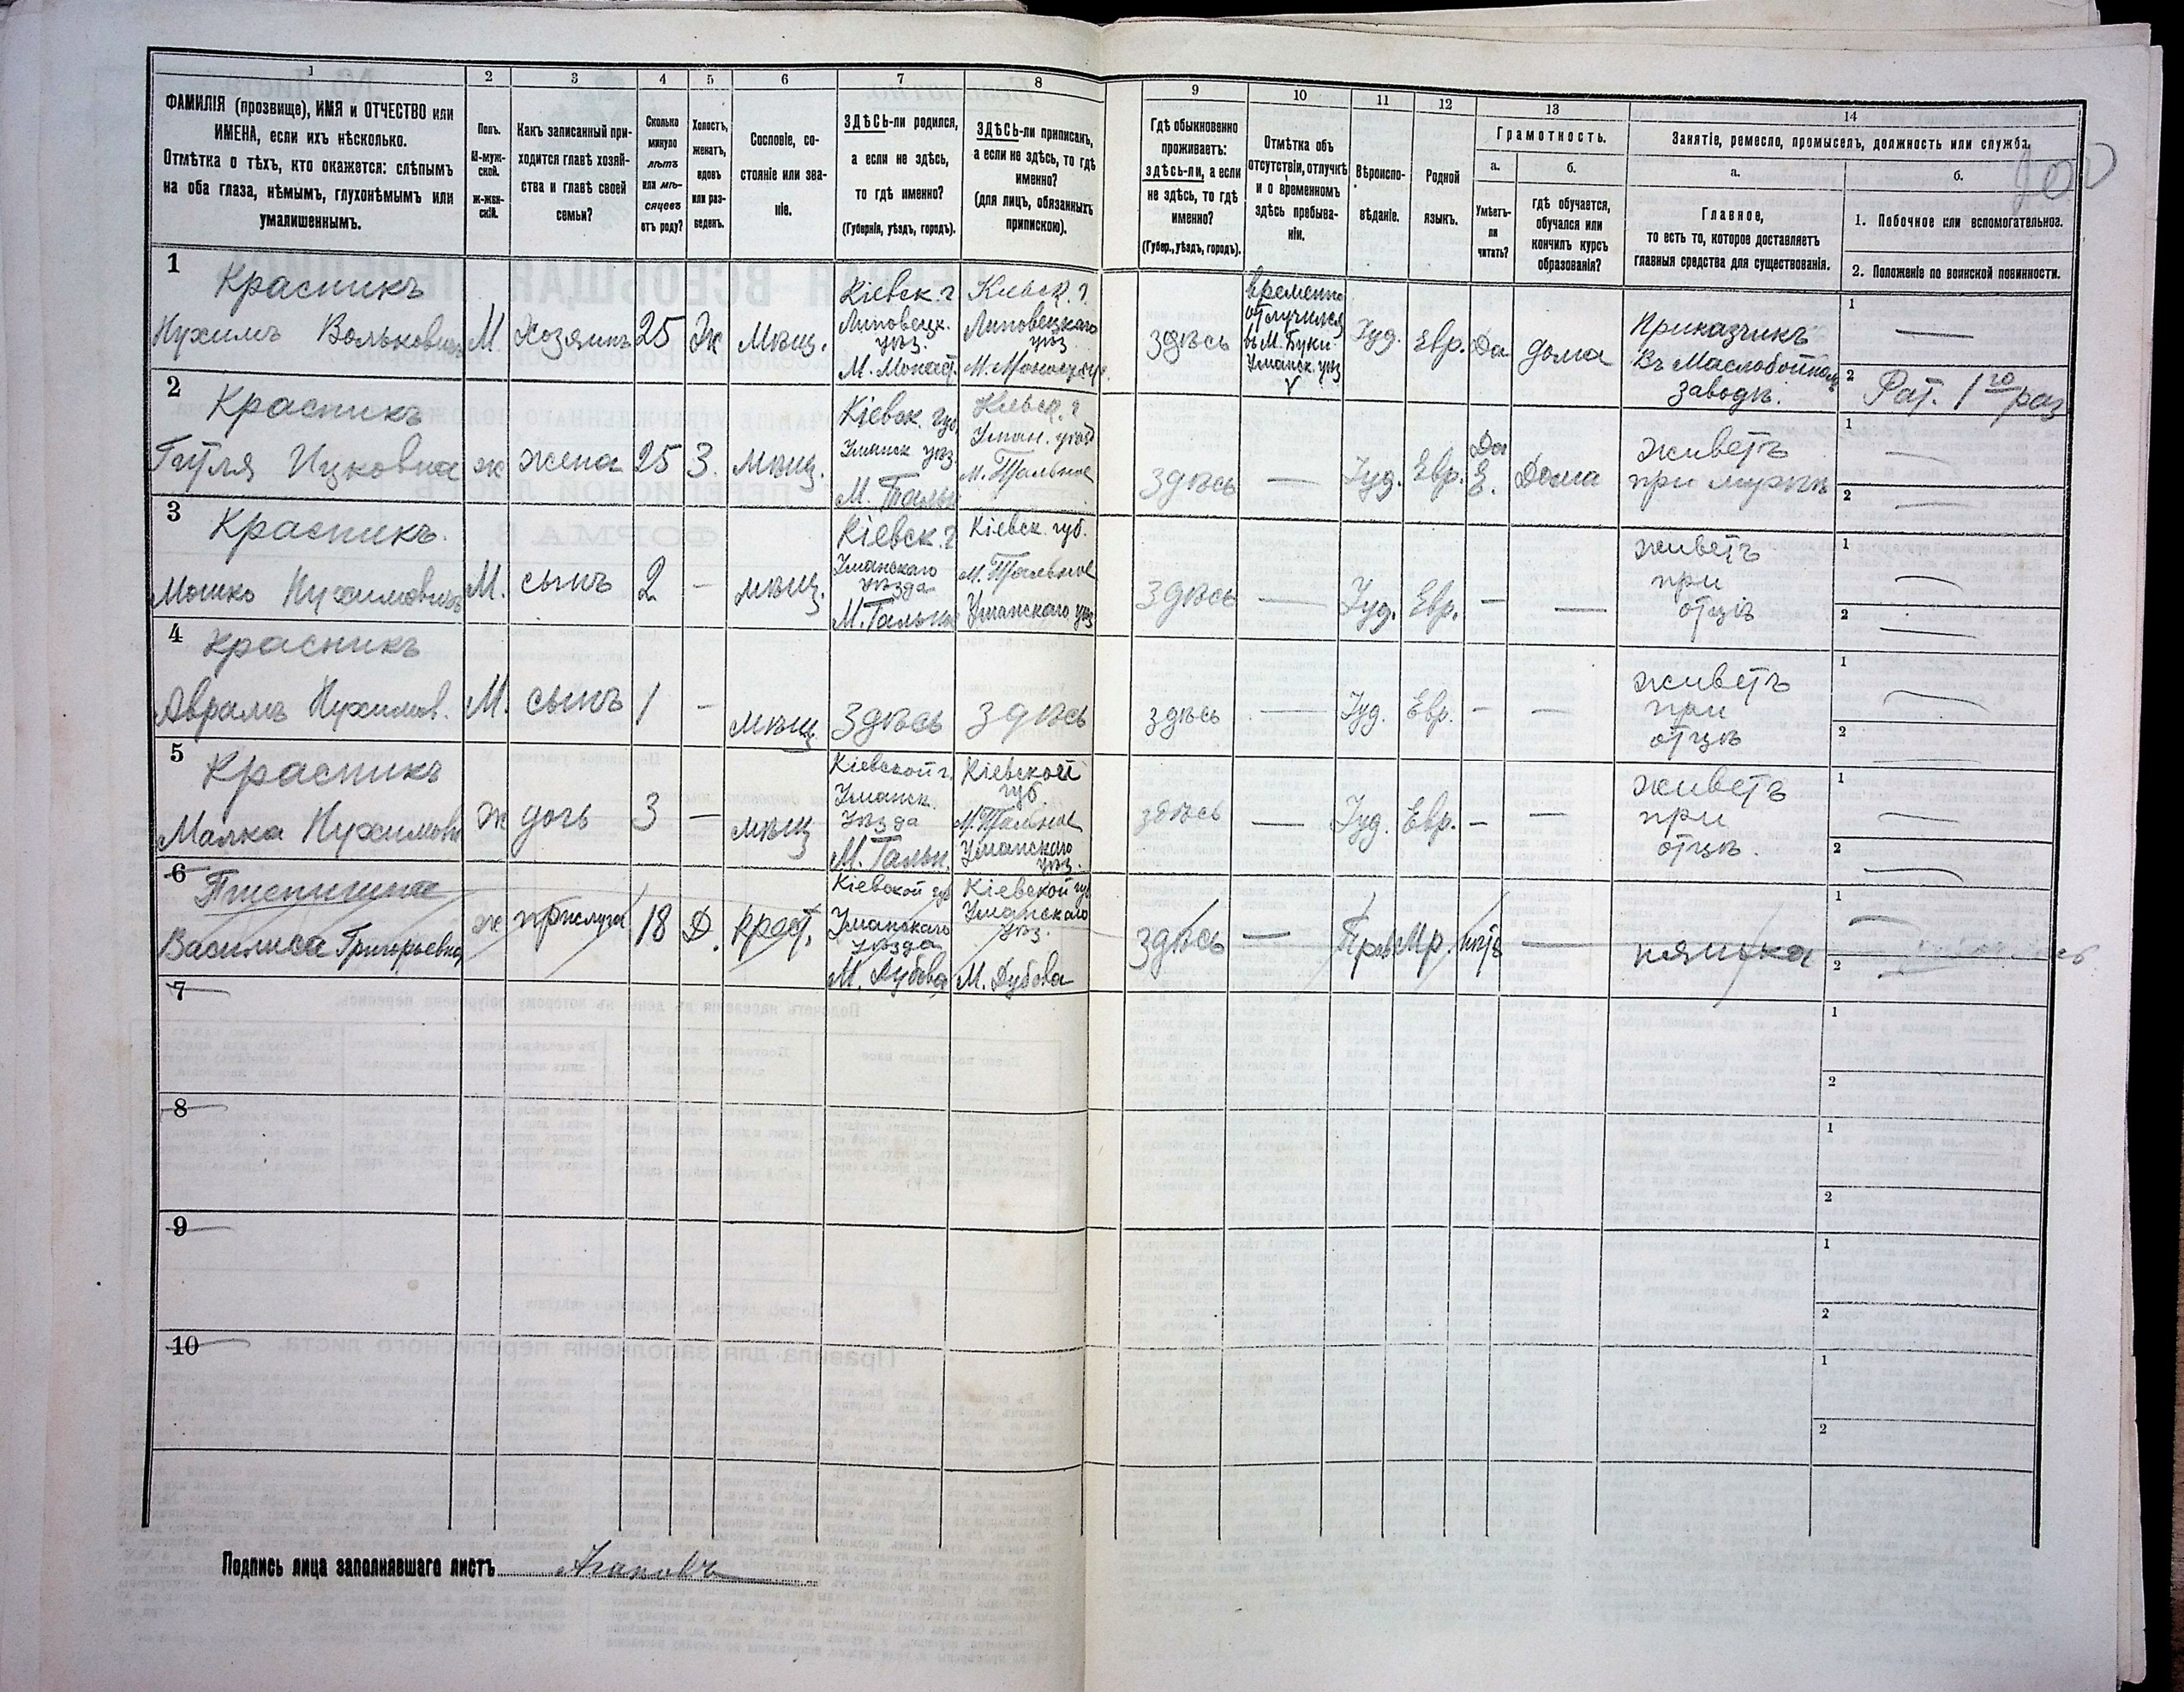 1
2
3
4
5
6
7
8
9
10
11
12
13
14
ФАМИЛІЯ (прозвище), ИМЯ и ОТЧЕСТВО или
ИМЕНА, если ихъ нѣсколько.
Отмѣтка о тѣхъ, кто окажется: слѣпымъ
на оба глаза, нѣмымъ, глухонѣмымъ или
умалишеннымъ.
Полъ.
М-муж-
ской.
ж-жен-
скій.
Какъ записанный при-
ходится главѣ хозяй-
ства и главѣ своей
семьи?
Сколько
минуло
лѣтъ
или мѣ-
сяцевъ
отъ роду?
Холостъ,
женатъ,
вдовъ
или раз-
веденъ.
Сословіе, со-
стояніе или зва-
ніе.
ЗДѢСЬ-ли родился,
а если не здѣсь,
то гдѣ именно?
(Губернія, уѣздъ, городъ).
ЗДѢСЬ-ли приписанъ,
а если не здѣсь, то гдѣ
именно?
(для лицъ, обязанныхъ
припискою).
Гдѣ обыкновенно
проживаетъ:
здѣсь-ли, а если
не здѣсь, то гдѣ
именно?
(Губер., уѣздъ, городъ).
Отмѣтка объ
отсутствіи, отлучкѣ
и о временномъ
здѣсь пребыва-
ніи.
Вѣроиспо-
вѣданіе.
Родной
языкъ.
Грамотность.
а.
Умѣетъ-
ли
читать?
б.
гдѣ обучается,
обучался или
кончилъ курсъ
образованія?
Занятіе, ремесло, промыселъ, должность или служба.
а.
Главное,
то есть то, которое доставляетъ
главныя средства для существованія.
б.
1. Побочное или вспомогательное.
2. Положеніе по воинской повинности.
1
Красникъ
Нухимъ Вольковичъ
М
Хозяинъ
25
Ж
Мѣщ.
Кіевск. г
Липовецк.
уѣз.
М. Монаст.
Кіевск. г.
Липовецкаго
уѣз
здѣсь
временно
отлучился
въ М. Буки
Уманск. уѣз
Іуд.
Евр.
Да
дома
Приказчикъ
Въ Маслобойном
заводѣ.
1 —
2 Рат. 1го раз
2
Красникъ
Гитля Ицковна
ж
жена
25
З.
мѣщ.
Кіевск. губ.
Уманск уѣз
М. Тальн
Кіевск. г
Уман. уѣзд
м. Тальное
здѣсь
—
Іуд.
Евр.
Да
Е.
Дома
живетъ
при мужѣ
1 —
2 —
3
Красникъ.
Мошко Нухимовичъ
М.
сынъ
2
—
мѣщ.
Кіевск. г
Уманскаго
уѣзда
М. Тальн
Кіевск. губ.
м. Тальное
Уманскаго уѣз
здѣсь
—
Іуд.
Евр.
—
—
живетъ
при
отцѣ
1 —
2 —
4
Красникъ
Аврамъ Нухимов.
М.
сынъ
1
—
мѣщ
Здѣсь
здѣсь
здѣсь
—
Іуд.
Евр.
—
—
живетъ
при
отцѣ
1 —
2 —
5
Красникъ
Малка Нухимовн
ж
дочь
3
—
мѣщ
Кіевской г.
Уманск.
Уѣзда
М. Тальн.
Кіевской
губ
М. Тальное
Уманскаго
уѣз.
здѣсь
—
Іуд.
Евр.
—
—
живетъ
при
отцѣ.
1 —
2 —
6
Василиса Григорьевна
ж
прислуга
18
Д.
крест.
Кіевской губ
Уманскаго
Уѣзда
М. Дубова
Кіевской губ
Уманскаго
Уѣз.
М. Дубова
здѣсь
—
Прав
Мр.
нѣтъ
—
нянька
1 —
2
7
1
2
8
1
2
9
1
2
10
1
2
Подпись лица заполнявшаго листъ Агаповъ